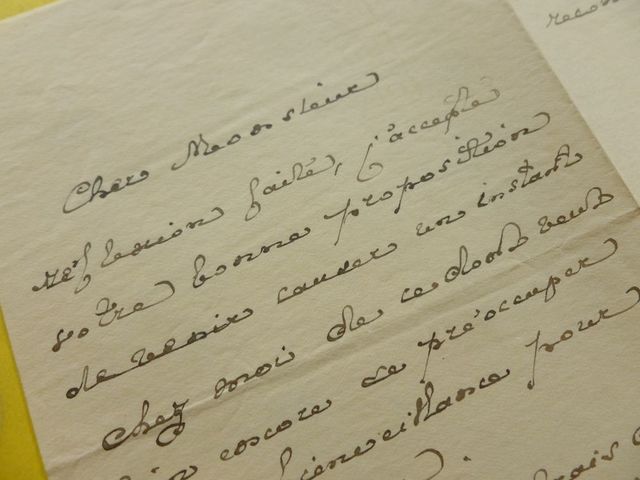 Cher Monsieur
reflexion faite, j'accepte
votre bonne proposition
de venir causer un instant
chez moi de ce dont veut
bien encore se préocuper
bienveillance pour
reco